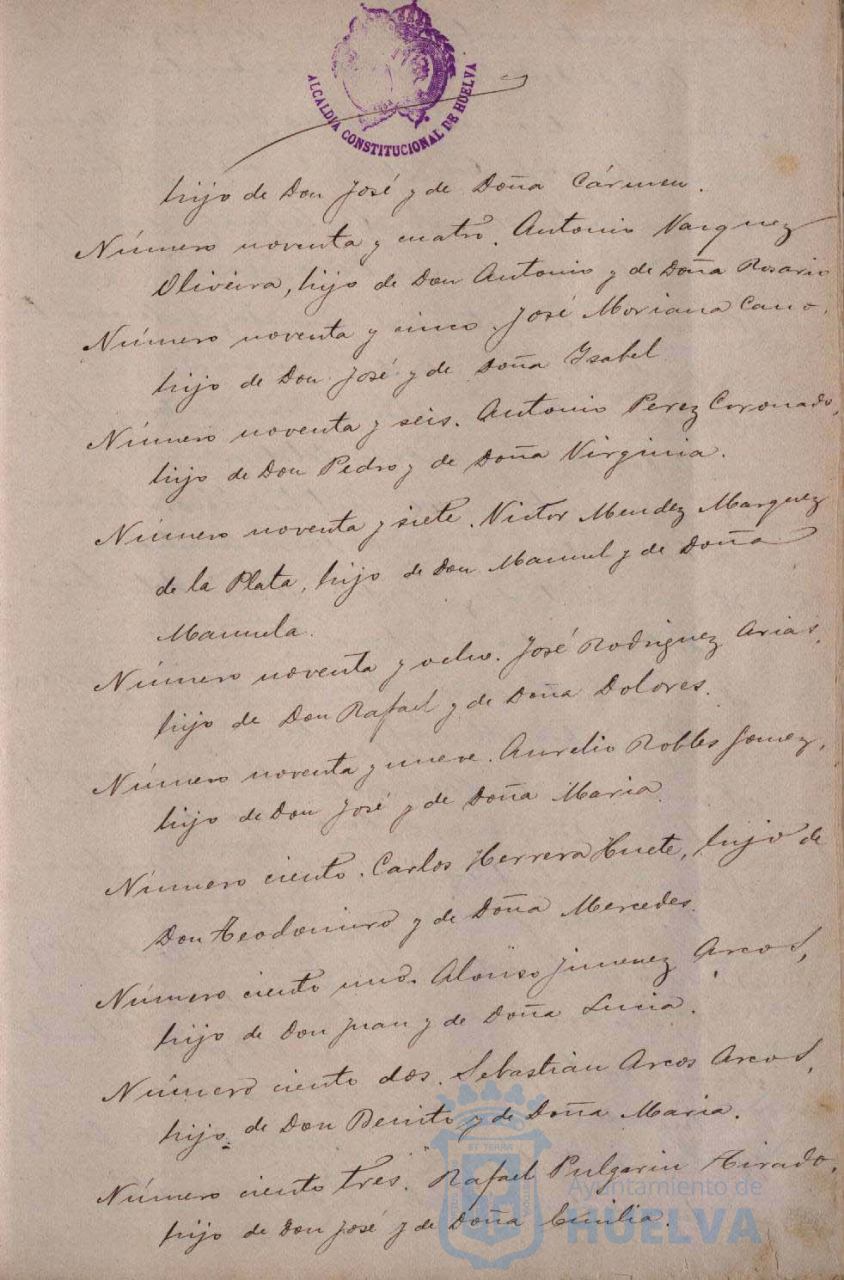 ALCALDIA CONSTITUCIONAL DE HUELVA
hijo de Don José y de Doña Cármen.
Número noventa y cuatro. Antonio Vazquez
Oliveira, hijo de Don Antonio y de Doña Rosario
Número noventa y cinco. José Moriana Cano,
hijo de Don José y de Doña Ysabel
Número noventa y seis. Antonio Perez Coronado,
hijo de Don Pedro y de Doña Virginia.
Número noventa y siete. Victor Mendez Marquez
de la Plata, hijo de Don Manuel y de Doña
Manuela.
Número noventa y ocho. José Rodriguez Arias,
hijo de Don Rafael y de Doña Dolores.
Número noventa y nueve. Aurelio Robles Gomez,
hijo de Don José y de Doña Maria.
Número ciento. Carlos Herrera Huete, hijo de
Don Teodomiro y de Doña Mercedes.
Número ciento uno. Alonso Jimenez Arcos,
hijo de Don Juan y de Doña Lucia.
Número ciento dos. Sebastián Arcos Arcos,
hijo de Don Benito y de Doña Maria.
Número ciento tres. Rafael Pulgarin Tirado,
hijo de Don José y de Doña
Ayuntamiento de
HUELVA